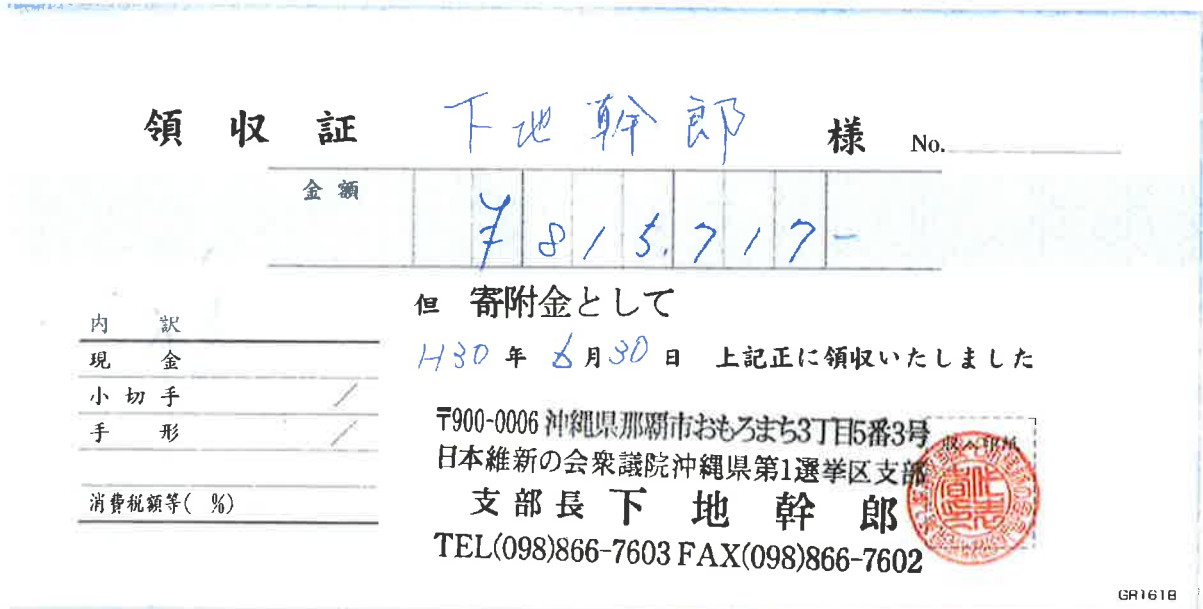 領収証 下地幹郎 様 No.
金額 ¥815,717-
但 寄附金として
内訳
H30年6月30日 上記正に領収いたしました
現金
小切手 /
手形 /
消費税額等( %)
〒900-0006 沖縄県那覇市おもろまち3丁目5番3号
収入印紙
日本維新の会衆議院沖縄県第1選挙区支部
支部長 下地幹郎
TEL(098)866-7603 FAX(098)866-7602
GR1618